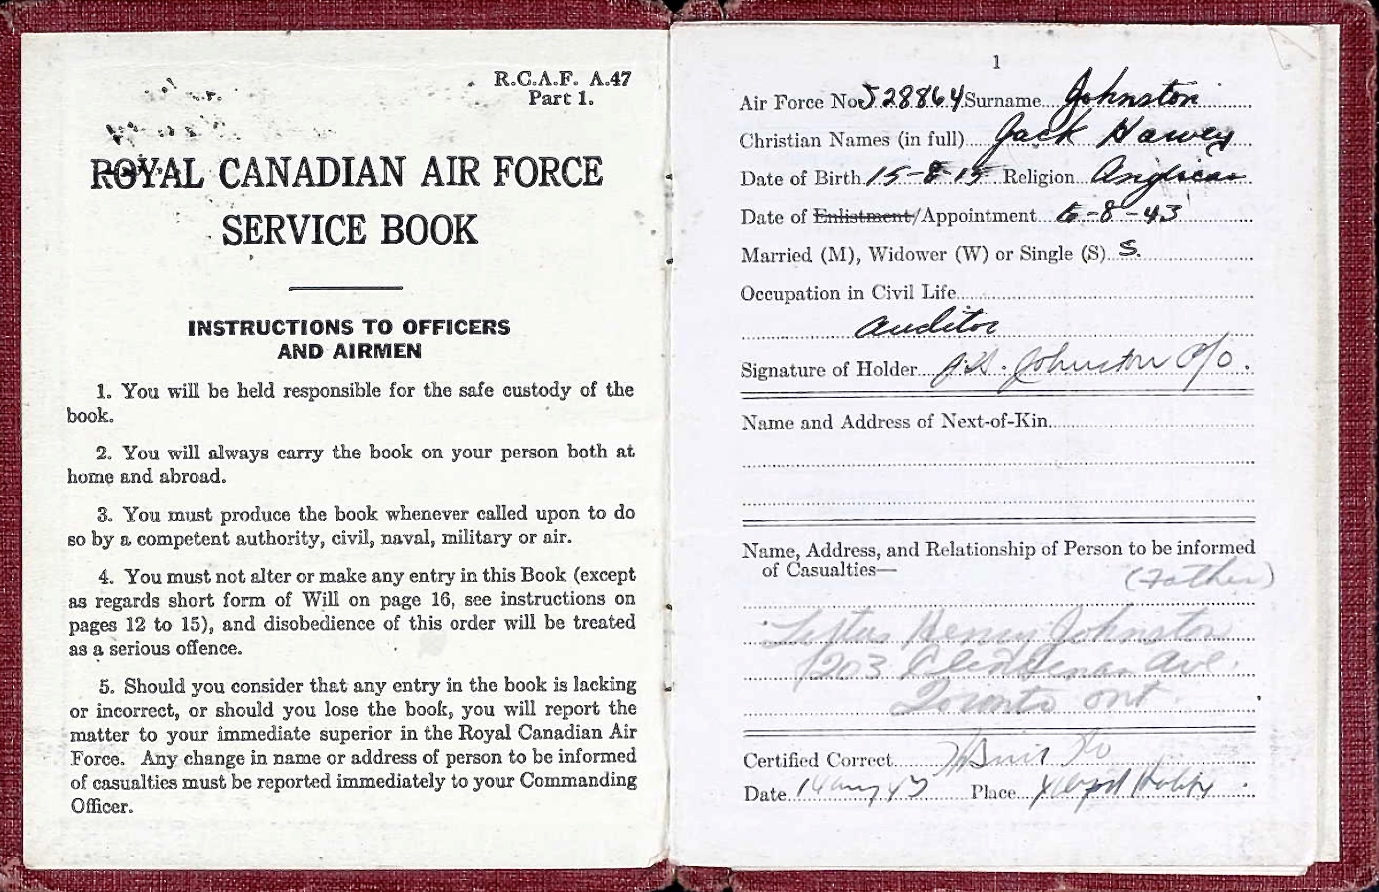 R.C.A.F. A.47
Part 1.
ROYAL CANADIAN AIR FORCE
SERVICE BOOK
INSTRUCTIONS TO OFFICERS
AND AIRMEN
1. You will be held responsible for the safe custody of the
book.
2. You will always carry the book on your person both at
home and abroad.
3. You must produce the book whenever called upon to do
so by a competent authority, civil, naval, military or air.
4. You must not alter or make any entry in this Book (except
as regards short form of Will on page 16, see instructions on
pages 12 to 15), and disobedience of this order will be treated
as a serious offence.
5. Should you consider that any entry in the book is lacking
or incorrect, or should you lose the book, you will report the
matter to your immediate superior in the Royal Canadian Air
Force. Any change in name or address of person to be informed
of casualties must be reported immediately to your Commanding
Officer.
1
Air Force No J28864 Surname Johnston
Christian Names (in full) Jack Harvey
Date of Birth 15-8-15 Religion Anglican
Date of Enlistment/Appointment 6-8-43
Married (M), Widower (W) or Single (S) S.
Occupation in Civil Life
Auditor
Signature of Holder J.H. Johnston P/O.
Name and Address of Next-of-Kin
Name, Address, and Relationship of Person to be informed
of Casualties—
(Father)
Henry Johnston
203 Ave.
Toronto Ont.
Certified Correct
Date Place